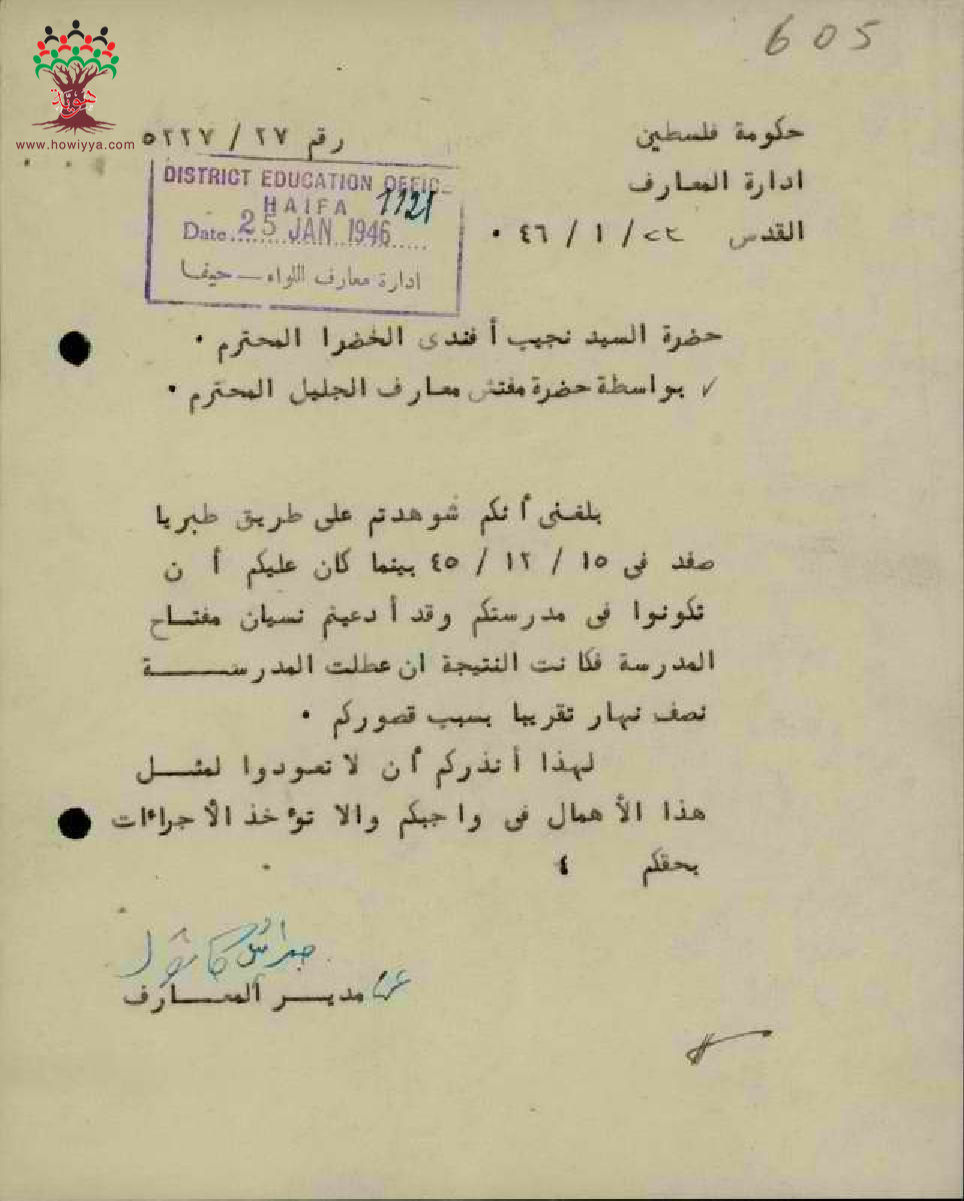 605
هوية
www.howiyya.com
حكومة فلسطين
رقم ٢٧ / ٥٢٢٧
ادارة المعارف
القدس ٢٢ / ١ / ٤٦ ٠
DISTRICT EDUCATION OFFICE
HAIFA
1121
Date 25 JAN 1946
ادارة معارف اللواء — حيفا
حضرة السيد نجيب أفندى الخضرا المحترم ٠
✓ بواسطة حضرة مفتش معارف الجليل المحترم ٠
بلغنى أنكم شوهدتم على طريق طبريا
صفد فى ١٥ / ١٢ / ٤٥ بينما كان عليكم أن
تكونوا فى مدرستكم وقد أدعيتم نسيان مفتاح
المدرسة فكانت النتيجة ان عطلت المدرســـة
نصف نهار تقريبا بسبب قصوركم ٠
لهذا أنذركم أن لا تعودوا لمثـــل
هذا الأهمال فى واجبكم والا تؤخذ الأجراءات
بحقكم
جبرائيل كاتول
عن مديـــر المعـــارف